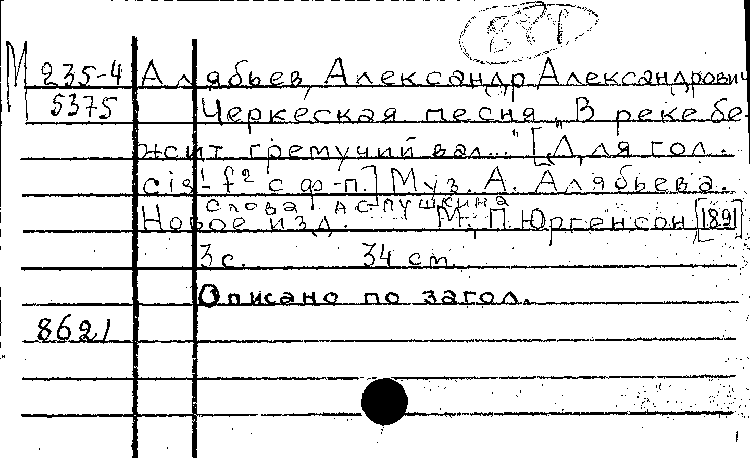 М 235-4 Алябьев, Александр Александрович
5375 Черкеская песня „В реке бе-
жит гремучий вал..." [Для гол.
cis¹-f² с ф-п.] Муз. А. Алябьева.
Слова А. С. Пушкина
Новое изд. М., П. Юргенсон, [1891]
3 с. 34 см.
Описано по загол.
8621